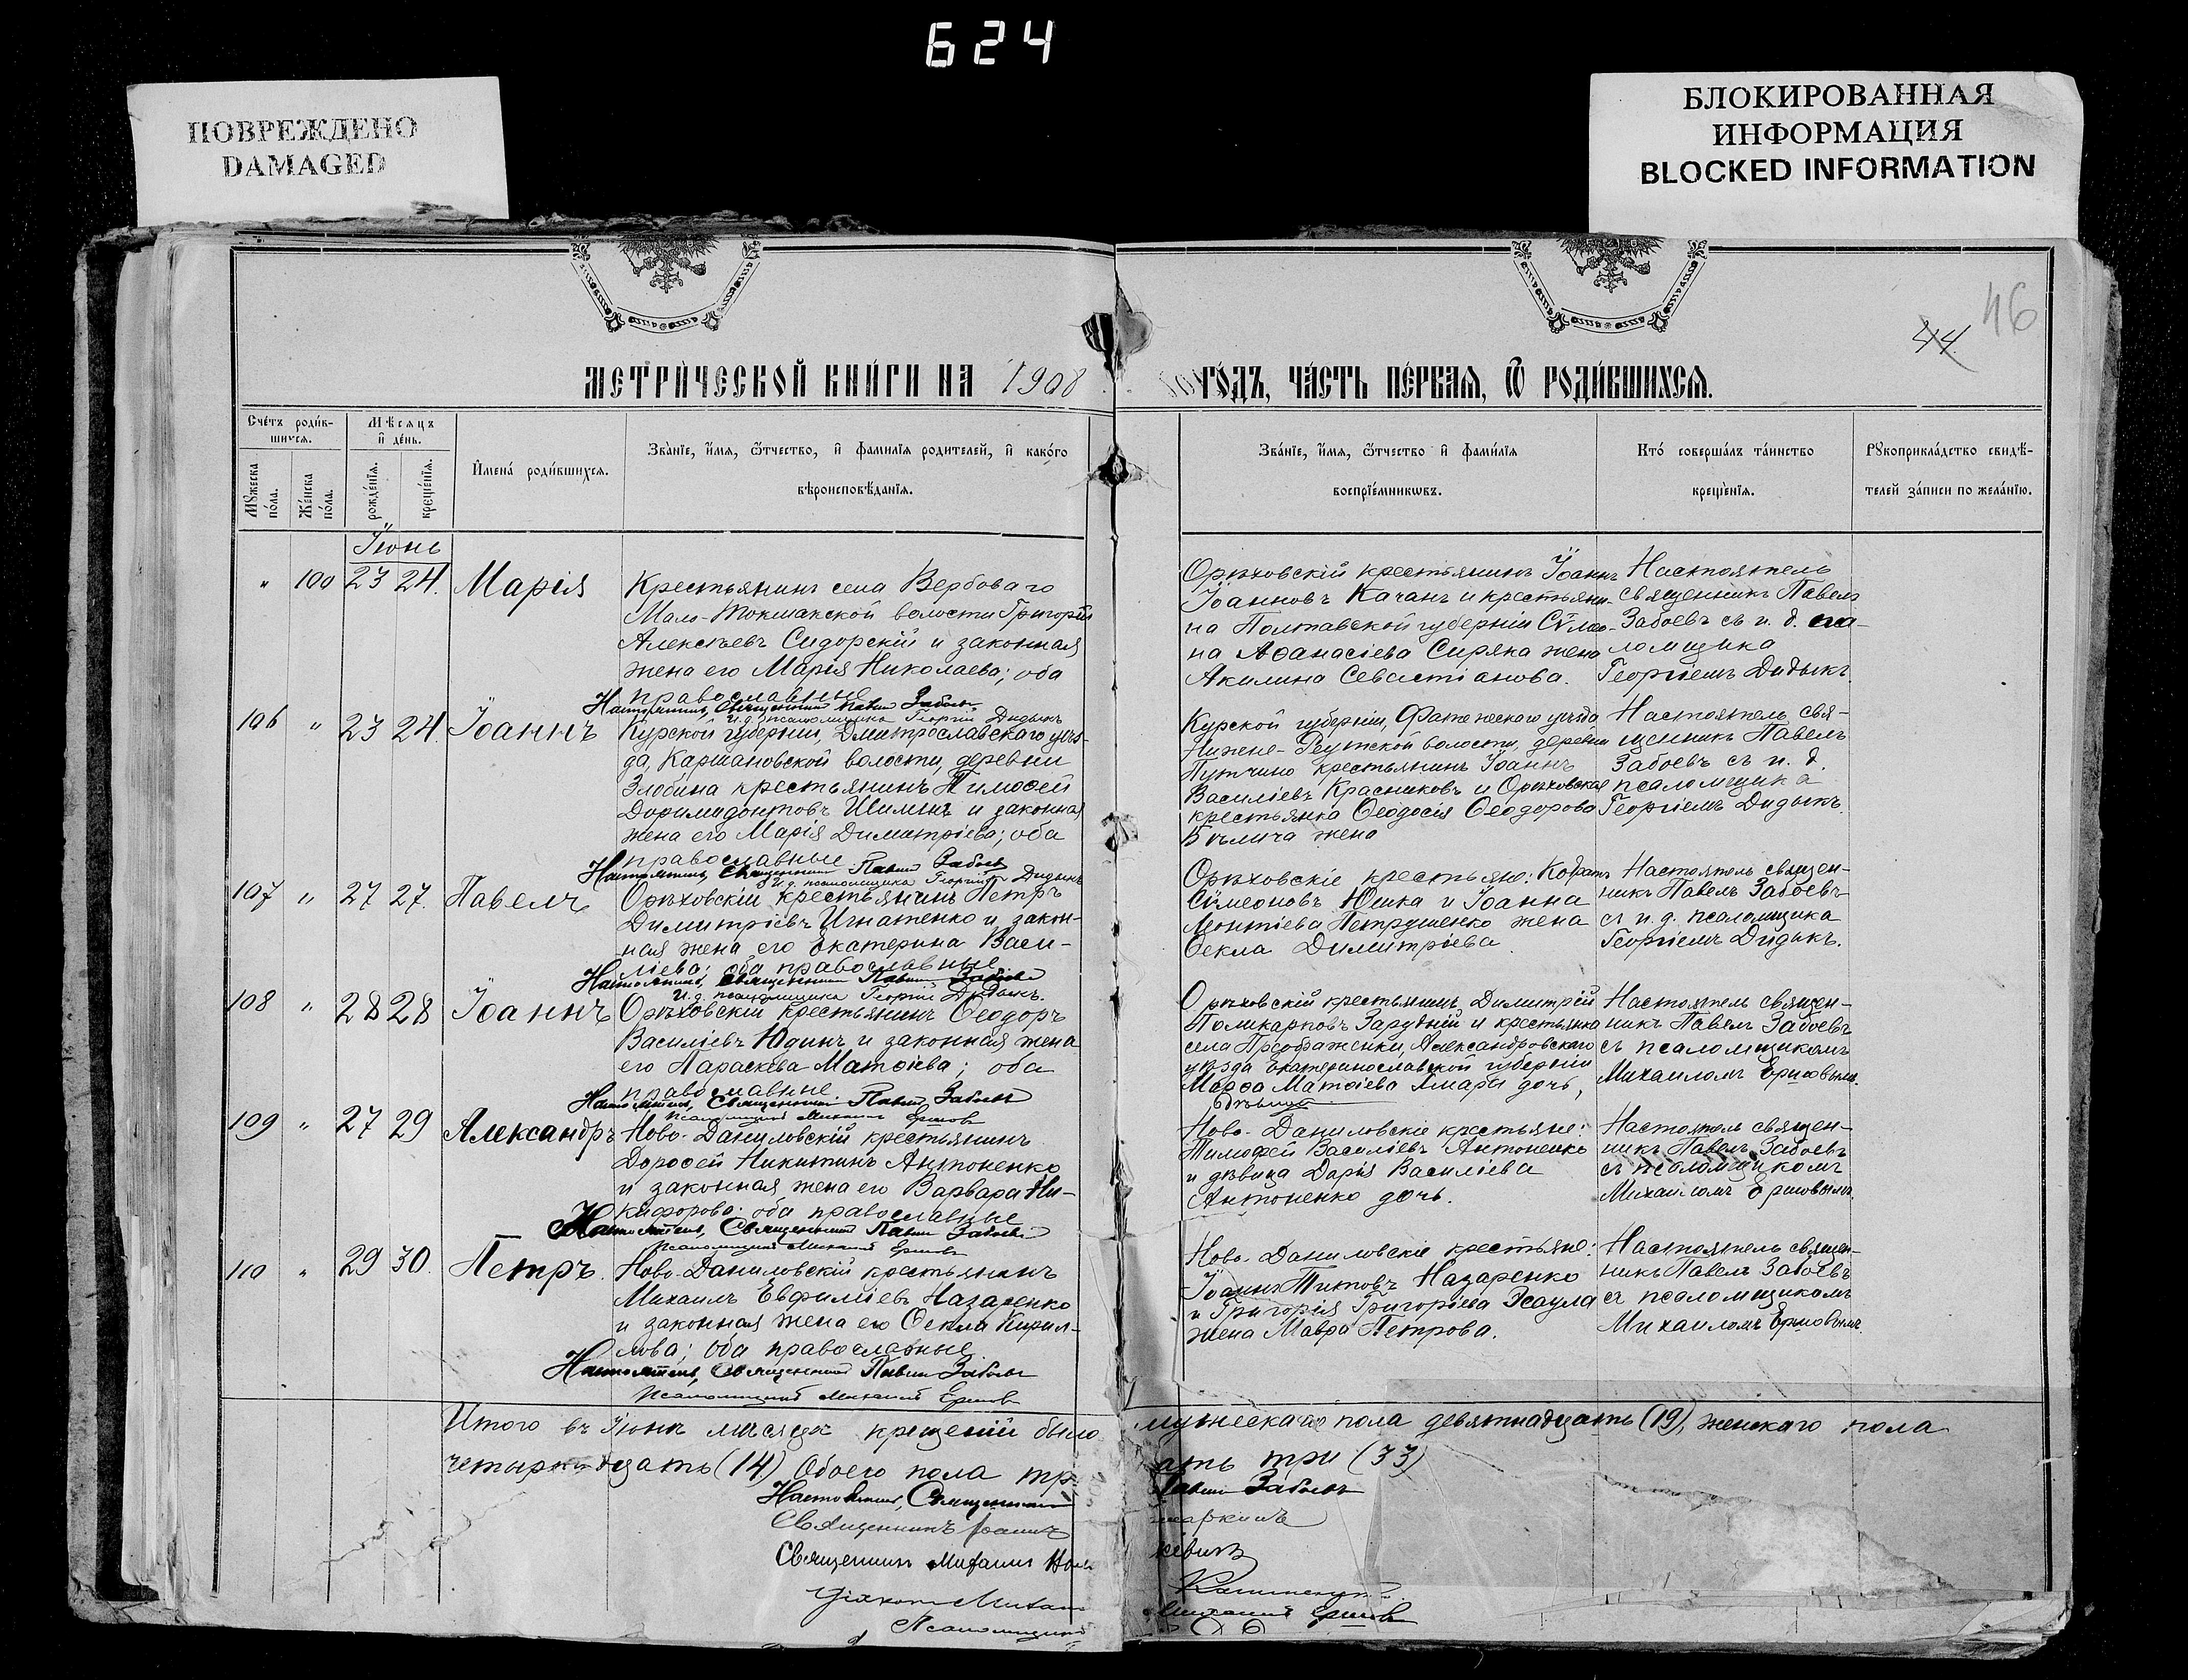 624
ПОВРЕЖДЕНО
DAMAGED
БЛОКИРОВАННАЯ
ИНФОРМАЦИЯ
BLOCKED INFORMATION
46
44
МЕТРИ́ЧЕСКОЙ КНИ́ГИ НА 1908
ГО́ДЪ, ЧА́СТЬ ПЕ́РВАЯ, Ѿ РОДИ́ВШИХСЯ.
Сче́тъ роди́в-
шихся.
Мꙋ́жеска по́ла.
Же́нска по́ла.
Мѣ́сяцъ
и҆ де́нь.
рожде́нїя.
креще́нїя.
И҆мена̀ роди́вшихся.
Зва́нїе, и҆́мя, ѻ҆́тчество, и҆ фами́лїя родителей, и҆ како́го
вѣроисповѣ́данїя.
Зва́нїе, и҆́мя, ѻ҆́тчество и҆ фами́лїя
воспрїе́мникѡвъ.
Кто́ соверша́лъ та́инство
креще́нїя.
Рꙋкоприкла́дство свидѣ́-
телей за́писи по жела́нїю.
Іюнь
" 100 23 24. Марія
Крестьянинъ села Вербоваго
Мало-Токмакской волости Григорій
Алексѣевъ Сидорскій и законная
жена его Марія Николаева; оба
православные
Настоятель, Священникъ Павелъ Забоевъ
И.д. псаломщика Георгій Дидыкъ
Орѣховскій крестьянинъ Іоаннъ
Іоанновъ Качанъ и крестьяни-
на Полтавской губерніи Сѵмео-
на Аѳанасіева Сиряка жена
Акилина Севастіанова.
Настоятель
священникъ Павелъ
Забоевъ съ и. д. пса-
ломщика
Георгіемъ Дидыкъ.
106 " 23 24. Іоаннъ
Курской губерніи, Дмитрославскаго уѣз-
да, Каршановской волости, деревни
Злобина крестьянинъ Тимоѳей
Доримидонтовъ Шилинъ и законная
жена его Марія Димитріева; оба
православные
Настоятель, Священникъ Павелъ Забоевъ
И.д. псаломщика Георгій Дидыкъ
Курской губерніи, Фатежескаго уѣзда
Нижне-Реутской волости, деревни
Путчино крестьянинъ Іоаннъ
Василіевъ Красниковъ и Орѣховская
крестьянка Ѳеодосія Ѳеодорова
Бѣлича жена
Настоятель свя-
щенникъ Павелъ
Забоевъ съ и. д.
псаломщика
Георгіемъ Дидыкъ.
107 " 27 27. Павелъ
Орѣховскій крестьянинъ Петръ
Димитріевъ Игнатенко и закон-
ная жена его Екатерина Васи-
ліева; оба православные
Настоятель, Священникъ Павелъ Забоевъ
И.д. псаломщика Георгій Дидыкъ.
Орѣховскіе крестьяне: Кодратъ
Сѵмеоновъ Юшка и Іоанна
Леонтіева Петрушенко жена
Ѳекла Димитріева.
Настоятель священ-
никъ Павелъ Забоевъ
съ и.д. псаломщика
Георгіемъ Дидыкъ.
108 " 28 28 Іоаннъ
Орѣховскій крестьянинъ Ѳеодоръ
Василіевъ Юдинъ и законная жена
его Параскева Матѳіева; оба
православные
Настоятель, Священникъ Павелъ Забоевъ
Псаломщикъ Михаилъ Ершовъ
Орѣховскій крестьянинъ Димитрій
Поликарповъ Зарудній и крестьянка
села Преображенки, Александровскаго
уѣзда Екатеринославской губерніи
Марѳа Матѳіева Хмары дочь,
дѣвица
Настоятель священ-
никъ Павелъ Забоевъ
съ псаломщикомъ
Михаиломъ Ершовымъ.
109 " 27 29 Александръ
Ново-Даниловскій крестьянинъ
Дороѳей Никитинъ Антоненко
и законная жена его Варвара Ни-
кифорова; оба православные
Настоятель, Священникъ Павелъ Забоевъ
Псаломщикъ Михаилъ Ершовъ
Ново-Даниловскіе крестьяне:
Тимоѳей Василіевъ Антоненко
и дѣвица Дарія Василіева
Антоненко дочь.
Настоятель священ-
никъ Павелъ Забоевъ
съ псаломщикомъ
Михаиломъ Ершовымъ.
110 " 29 30. Петръ.
Ново-Даниловскій крестьянинъ
Михаилъ Евфиміевъ Назаренко
и законная жена его Ѳекла Кирил-
лова; оба православные
Настоятель, Священникъ Павелъ Забоевъ
Псаломщикъ Михаилъ Ершовъ
Ново-Даниловскіе крестьяне:
Іоаннъ Титовъ Назаренко
и Григорія Григоріева Эсаула
жена Мавра Петрова.
Настоятель священ-
никъ Павелъ Забоевъ
съ псаломщикомъ
Михаиломъ Ершовымъ.
Итого въ Іюнѣ мѣсяцѣ крещеній было мужескаго пола девятнадцать (19), женскаго пола
четырнадцать (14) Обоего пола тр ать три (33)
Настоятель, Священникъ Павелъ Забоевъ
Священникъ Іоаннъ маркинъ
Священникъ Михаилъ кевичъ
Діаконъ Михаи
Псаломщикъ Михаилъ Ершовъ